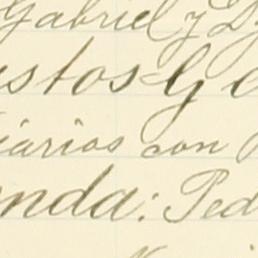 Gabriel y D
stos G
iarios con
nda: Ped